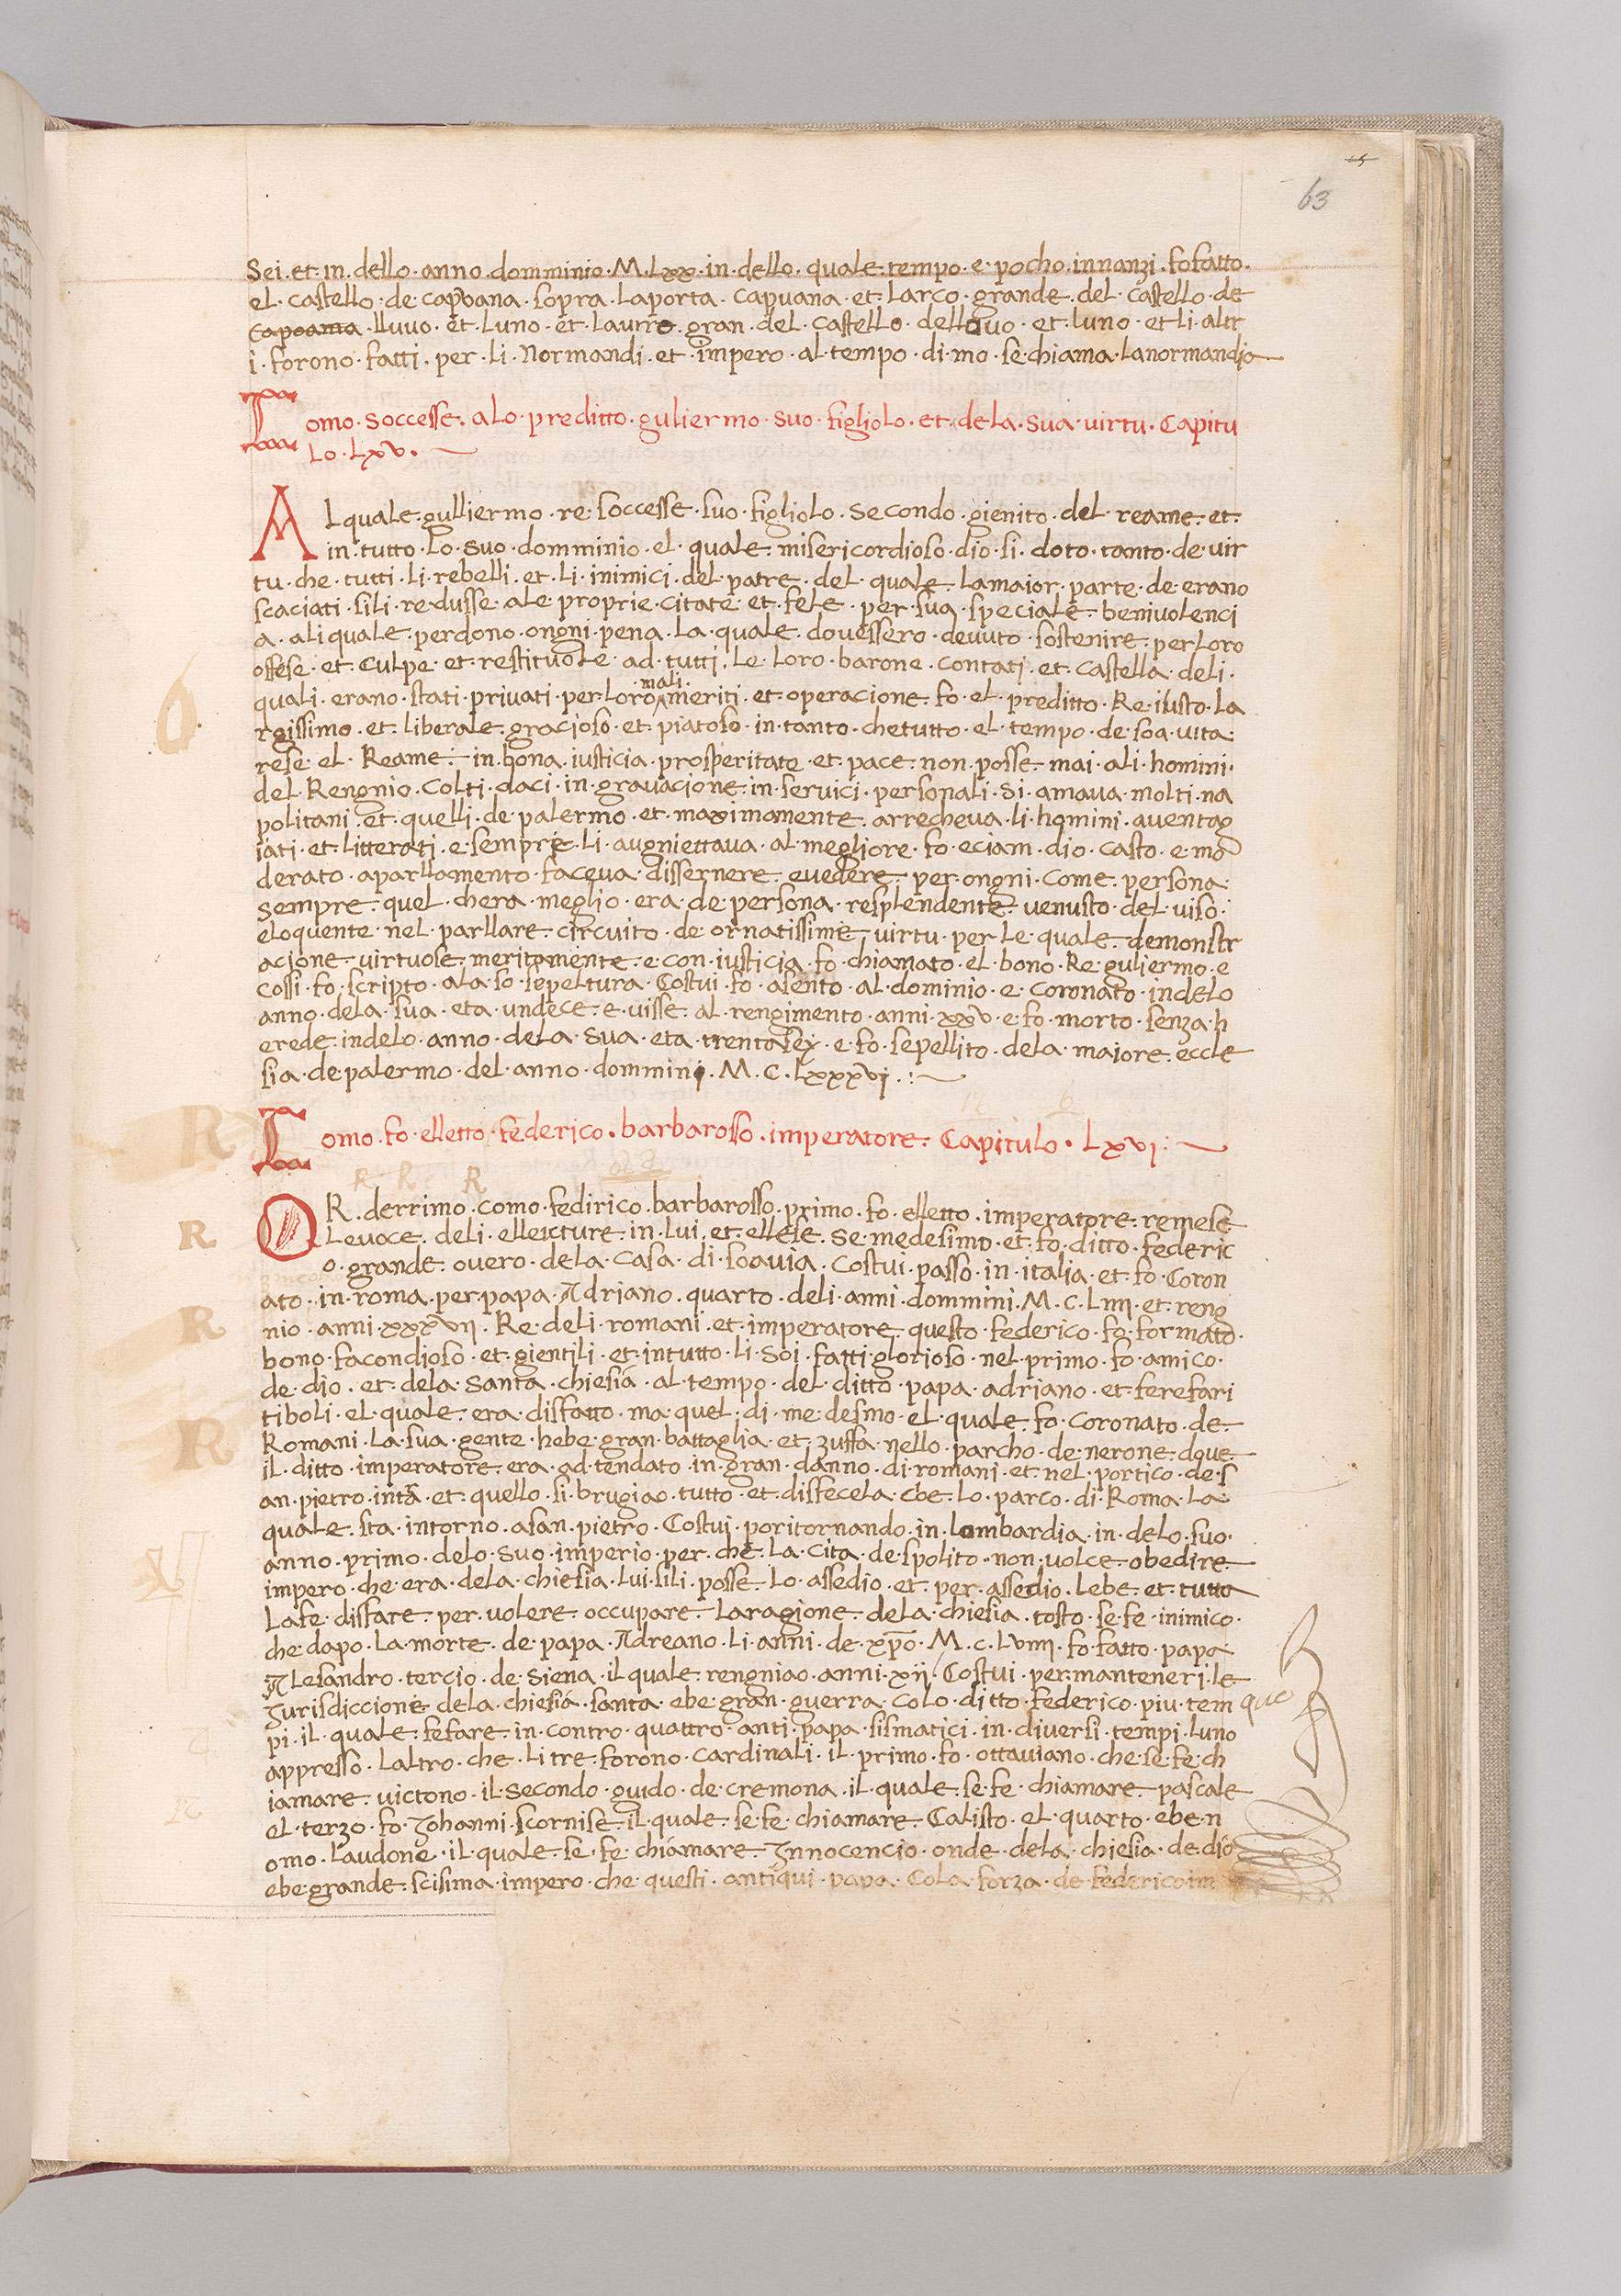 63
Sei · et · in · dello · anno · domminio · M · Lxx · in · dello · quale · tempo · e · pocho · innanzi · fo fatto ·
el · castello · de capuana · sopra · la porta · capuana · et · Larco · grande · del · castello · de
capoana · lluvo · et · Luno · et · Lautro · gran · del · castello · dellovo · et · luno · et li · altr
i · forono · fatti · per · li · Normandi · et · impero · al · tempo · di · mo · se · chiama · la normandia
Como · soccesse · a lo · preditto · guliermo · suo · figliolo · et · dela · sua · virtu · Capitu
Lo · Lxv ·
AL quale · gulliermo · re · soccesse · suo · figliolo · secondo · gienito · del · reame · et ·
in · tutto · lo · suo · domminio · el · quale · misericordioso · dio · si · doto · tanto · de · vir
tu · che · tutti · li · rebelli · et · li · inimici · del · patre · del · quale · la maior · parte · de · erano
scaciati · si li · redusse · ale · proprie · citate · et · fele · per · sua · speciale · benivolenci
a · ali quale · perdono · ongni · pena · La · quale · dovessero · devuto · sostenire · per Loro
offese · et · culpe · et · restituole · ad · tutti · Le · Loro · barone · contati · et · castella · deli ·
quali · erano · stati · privati · per · Loro · mali · meriti · et · operacione · fo · el · preditto · Re · iusto · La
rgissimo · et · liberale · gracioso · et · piatoso · in · tanto · che tutto · el · tempo · de · soa · vita ·
rese · el · Reame · in · bona · iusticia · prosperitate · et · pace · non · posse · mai · ali · homini ·
del · Rengnio · Colti · daci · in · gravacione · in · servici · personali · Si · amava · molti · na
politani · et · quelli · de palermo · et · maximamente · arrecheva · li · homini · aventag
iati · et · litterati · e · sempre · Li · augniettava · al · megliore · fo · eciam · dio · casto · e · mo
derato · a parllamento · faceva · dissernere · e vedere · per · ongni · come · persona ·
sempre · quel · chera · meglio · era · de persona · resplendente · venusto · del · viso ·
eloquente · nel · parllare · circuito · de · ornatissime · virtu · per Le · quale · demonstr
acione · virtuose · meritamente · e · con · iusticia · fo · chiamato · el · bono · Re · guliermo · e
cossi · fo · scripto · ala · so · sepeltura · Costui · fo · asento · al · dominio · e · coronato · in delo
anno · dela · sua · eta · undece · e · visse · al · rengimento · anni · xxv · e · fo · morto · senza · h
erede · in delo · anno · dela · sua · eta · trenta sej · e · fo · sepellito · dela · maiore · eccle
sia · de palermo · del · anno · dommini · M · C · Lxxxvj ·
Como · fo · elletto · federico · barbarosso · imperatore · Capitulo · Lxvi ·
OR · derrimo · como · fedirico · barbarosso · primo · fo · elletto · imperatore · remese
Le voce · deli · elleicture · in · lui · et · ellese · se · medesimo · et · fo · ditto · federic
o · grande · overo · dela · casa · di · soavia · Costui · passo · in · italia · et · fo · Coron
ato · in · roma · per · papa · Adriano · quarto · deli · anni · dommini · M · C · Liiii · et · reng
nio · anni · xxxvii · Re · deli · romani · et · imperatore · questo · federico · fo · formato ·
bono · facondioso · et · gientili · et · in tutto · li · soi · fatti · glorioso · nel · primo · fo · amico ·
de · dio · et · dela · santa · chiesia · al · tempo · del · ditto · papa · adriano · et · fere fari
tiboli · el · quale · era · disfatto · ma · quel · di · me desmo · el · quale · fo · coronato · de
Romani · La · sua · gente · hebe · gran · battaglia · et · zuffa · nello · parcho · de · nerone · dove
il · ditto · imperatore · era · ad · tendato · in · gran · danno · di · romani · et · nel · portico · de · s
an · pietro · inta · et · quello · si · brugiao · tutto · et · disfecela · che · lo · parco · di · Roma · La
quale · sta · intorno · a san · pietro · Costui · poritornando · in · Lombardia · in · delo · suo ·
anno · primo · delo · suo · imperio · per · che · La · cita · de · spolito · non · volce · obedire
impero · che · era · dela · chiesia · Lui · si li · posse · Lo · assedio · et · per · assedio · Lebe · et · tutta
Lafe · disfare · per · volere · occupare · La ragione · dela · chiesia · tosto · se · fe · inimico ·
che · dapo · La · morte · de · papa · Adreano · li · anni · de · xpo · M · c · Lviiii · fo · fatto · papa
ALesandro · tercio · de · siena · il · quale · rengniao · anni · xii · Costui · per · manteneri · le
Jurisdiccione · dela · chiesia · santa · ebe · gran · guerra · colo · ditto · federico · piu · tem
pi · il · quale · fe fare · in · contro · quattro · anti · papa · sismatici · in · diversi · tempi · Luno
appresso · Laltro · che · li tre · forono · cardinali · il · primo · fo · ottaviano · che · se · fe · ch
iamare · victono · il · secondo · guido · de · cremona · il · quale · se · fe · chiamare · pascale
el · terzo · fo · Johanni · scornise · il · quale · se · fe · chiamare · Calisto · el · quarto · ebe · n
omo · Laudone · il · quale · se · fe · chiamare · Innocencio · onde · dela · chiesia · de · dio
ebe · grande · scisima · impero · che · questi · antiqui · papa · Cola · forza · de · federico im